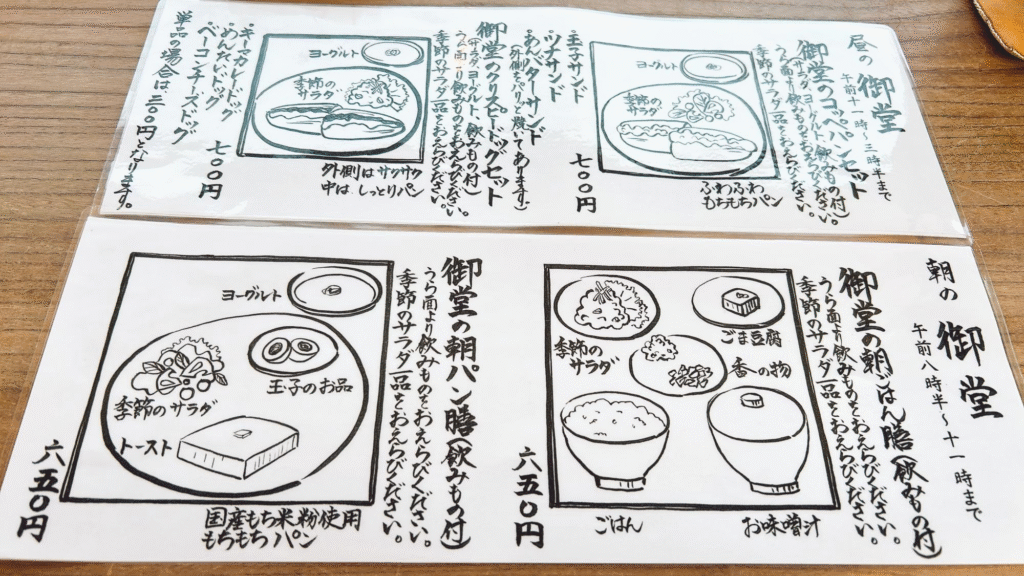 昼の御堂
午前十一時〜三時半まで
御堂のコッペパンセット
(サラダ、ヨーグルト、飲みもの付)
うら面より飲みものをおえらびください。
季節のサラダ一品をおえらびください。
ヨーグルト
季節の
サラダ
ふわふわ
もちもちパン
玉子サンド
ツナサンド
あんバターサンド
七〇〇円
(外側をパリッと焼いてあります。)
御堂のクリスピードッグセット
(サラダ、ヨーグルト、飲みもの付)
うら面より飲みものをおえらびください。
季節のサラダ一品をおえらびください。
ヨーグルト
季節の
サラダ
外側はサクサク
中はしっとりパン
キーマカレードッグ
めんたいドッグ
ベーコンチーズドッグ
七〇〇円
単品の場合は三〇〇円となります。
朝の御堂
午前八時半〜十一時まで
御堂の朝ごはん膳(飲みもの付)
うら面より飲みものをおえらびください。
季節のサラダ一品をおえらびください。
季節の
サラダ
ごま豆腐
香の物
ごはん
お味噌汁
六五〇円
御堂の朝パン膳(飲みもの付)
うら面より飲みものをおえらびください。
季節のサラダ一品をおえらびください。
ヨーグルト
王子のお品
季節のサラダ
トースト
国産もち米粉使用
もちもちパン
六五〇円